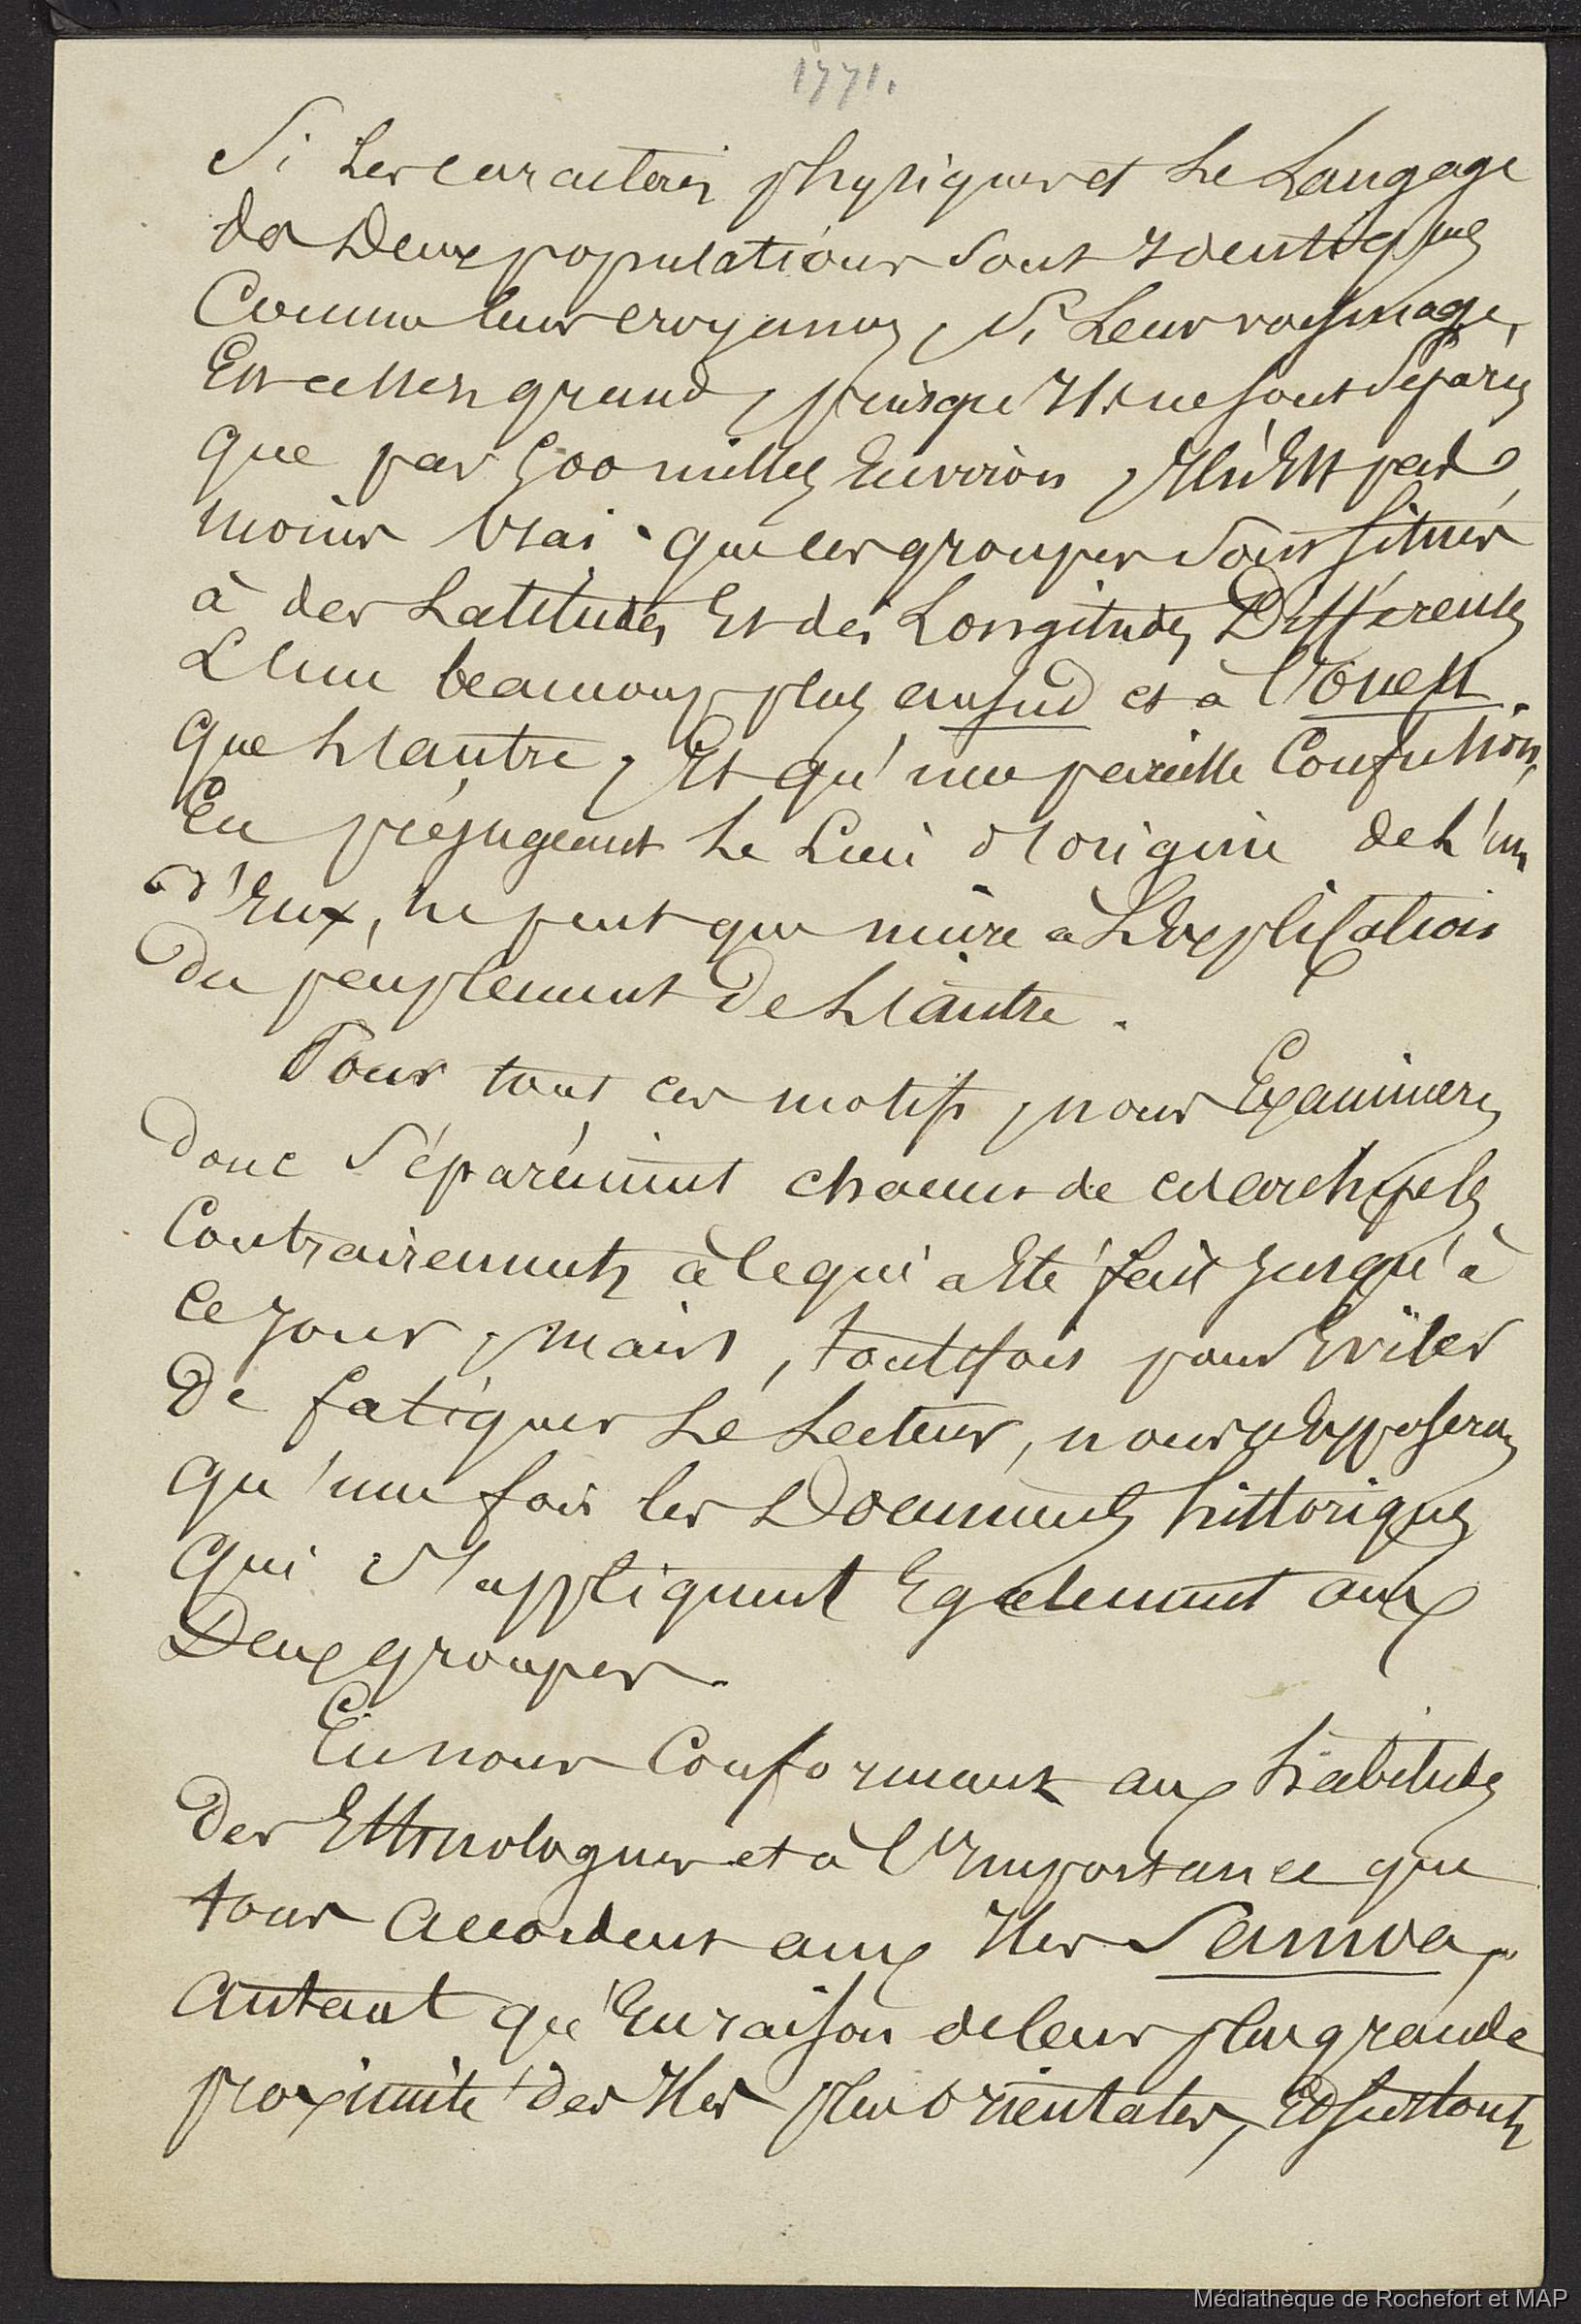 1771.
Si les caractères physiques et le Langage
des Deux populations sont identiques
Comme leurs croyances, si leur voisinage,
Est assez grand, puisqu'ils ne sont séparés
que par 500 milles Environ, il n'Est pas
moins vrai que les groupes sont situés
à des Latitudes Et des Longitudes Différentes
L'un beaucoup plus au sud et à l'ouest.
que L'autre, Et qu'une pareille Confusion,
En préjugeant le Lieu d'origine de L'un
d'Eux, ne peut que nuire à L'Explication
du peuplement de L'autre.
Pour tous ces motifs, nous Examinerons
donc séparément chacun de ces archipels
Contrairement à ce qui a Eté fait jusqu'à
ce jour, mais, toutefois pour Eviter
De fatiguer Le Lecteur, nous n'Exposerons
qu'une fois les Documents historiques
qui s'appliquent Egalement aux
Deux groupes.
En nous Conformant aux habitudes
des Ethnologues et à l'importance que
tous accordent aux Iles Samoa,
autant qu'En raison de leur plus grande
proximité des Iles plus orientales, Et surtout
Médiathèque de Rochefort et MAP